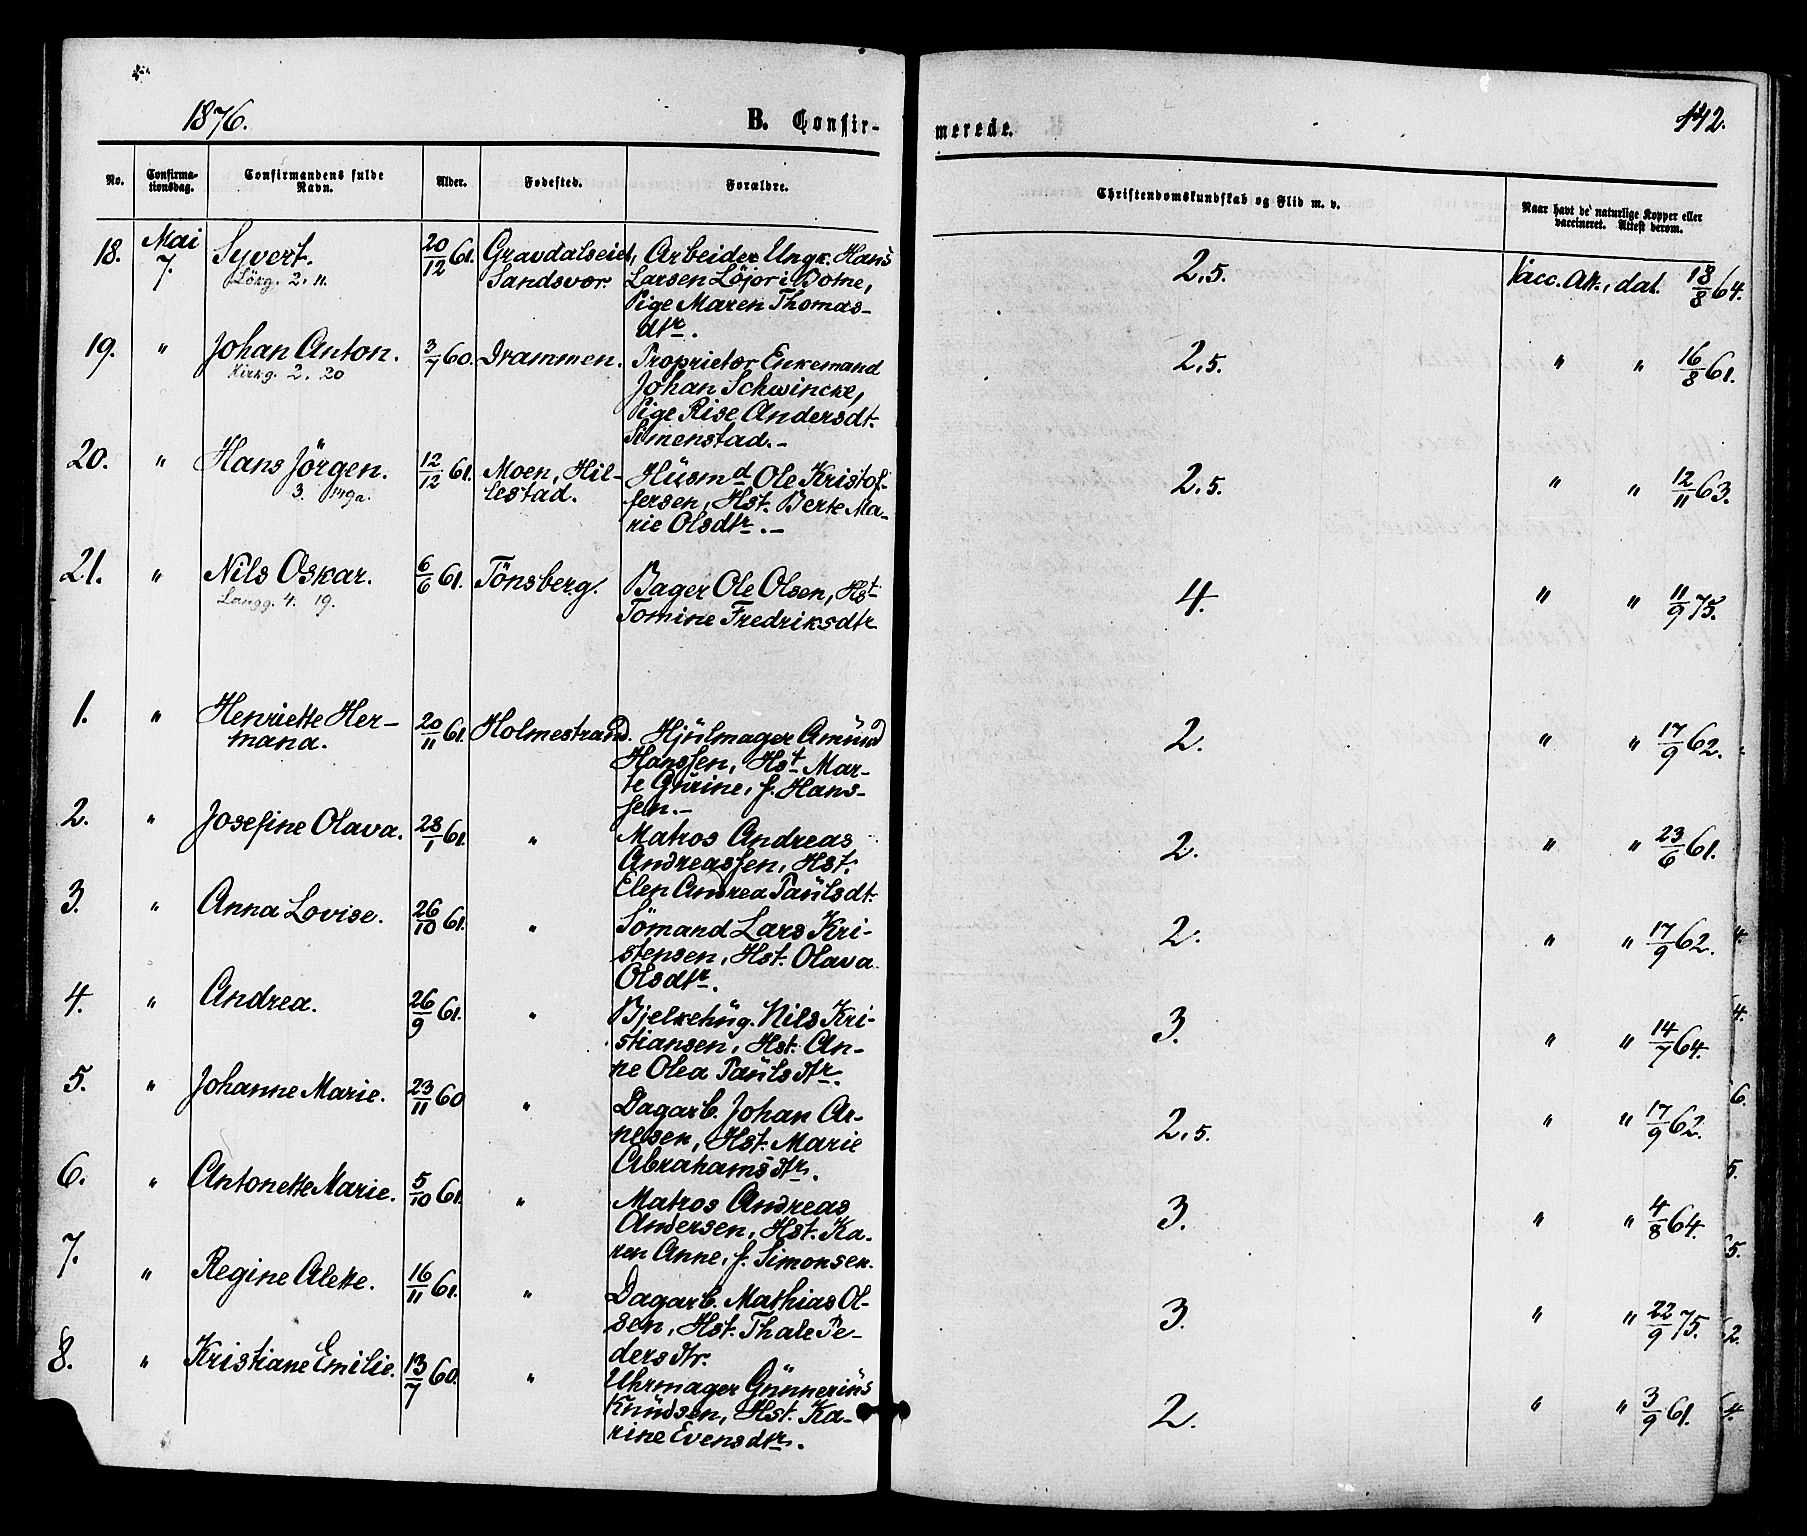 1876.
B. Confir-
merede.
142.
No.
Confirma-
tionsdag.
Confirmandens fulde
Navn.
Alder.
Fødested.
Forældre.
Christendomskundskab og Flid m. v.
Naar havt de naturlige Kopper eller
vaccineret. Attest derom.
18. Mai 7. Syvert. 20/12 61. Gravdalseid, Arbeider Ungk. Hans 2,5. Vacc. Att., dat. 18/8 64.
2. 11. Sandsvær Larsen Löjor i Botne,
Pige Maren Thomas-
dtr.
19. " Johan Anton. 3/7 60. Drammen. Proprietær Enkemand 2,5. " " 16/8 61.
Kirkg. 2. 20 Johan Schwincke,
Pige Rise Andersdt.
Simenstad.-
20. " Hans Jörgen. 12/12 61. Moen, Hil- Husmd Ole Kristof- 2,5. " " 12/11 63.
3. lestad. fersen, Hst. Berte Ma-
rie Olsdtr.-
21. " Nils Oskar. 6/6 61. Tönsberg. Bager Ole Olsen, Hst 4. " " 11/9 75.
Langg. 4. 19. Tomine Fredriksdtr
1. " Henriette Her- 20/11 61. Holmestrand. Hjulmager Amund 2. " " 17/9 62.
mana. Hanssen, Hst. Mar-
te Gurine, f. Hans-
sen.-
2. " Josefine Olava. 28/1 61. " Matros Andreas 2. " " 23/6 61.
Andreassen, Hst.
Elen Andrea Paulsdt.
3. " Anna Lovise. 26/10 61. " Sömand Lars Kri- 2. " " 17/9 62.
stensen, Hst. Olava
Olsdtr.
4. " Andrea. 26/9 61. " Bjelkehug. Nils Kri- 3. " " 14/7 64.
stiansen, Hst. An-
ne Olea Paulsdtr.
5. " Johanne Marie. 23/11 60 " Dagarb. Johan Ar- 2,5. " " 17/9 62.
nesen, Hst. Marie
Abrahamsdtr.
6. " Antonette Marie. 5/10 61. " Matros Andreas 3. " " 4/8 64.
Andersen, Hst. Ka-
ren Anne, f. Simonsen.
7. " Regine Alette. 16/11 61. " Dagarb. Mathias Ol- 3. " " 22/9 75.
sen, Hst. Thale Pe-
dersdtr.
8. " Kristiane Emilie. 13/7 60. " Uhrmager Gunnerius 2. " " 3/9 61.
Knudsen, Hst. Ka-
rine Evensdtr.